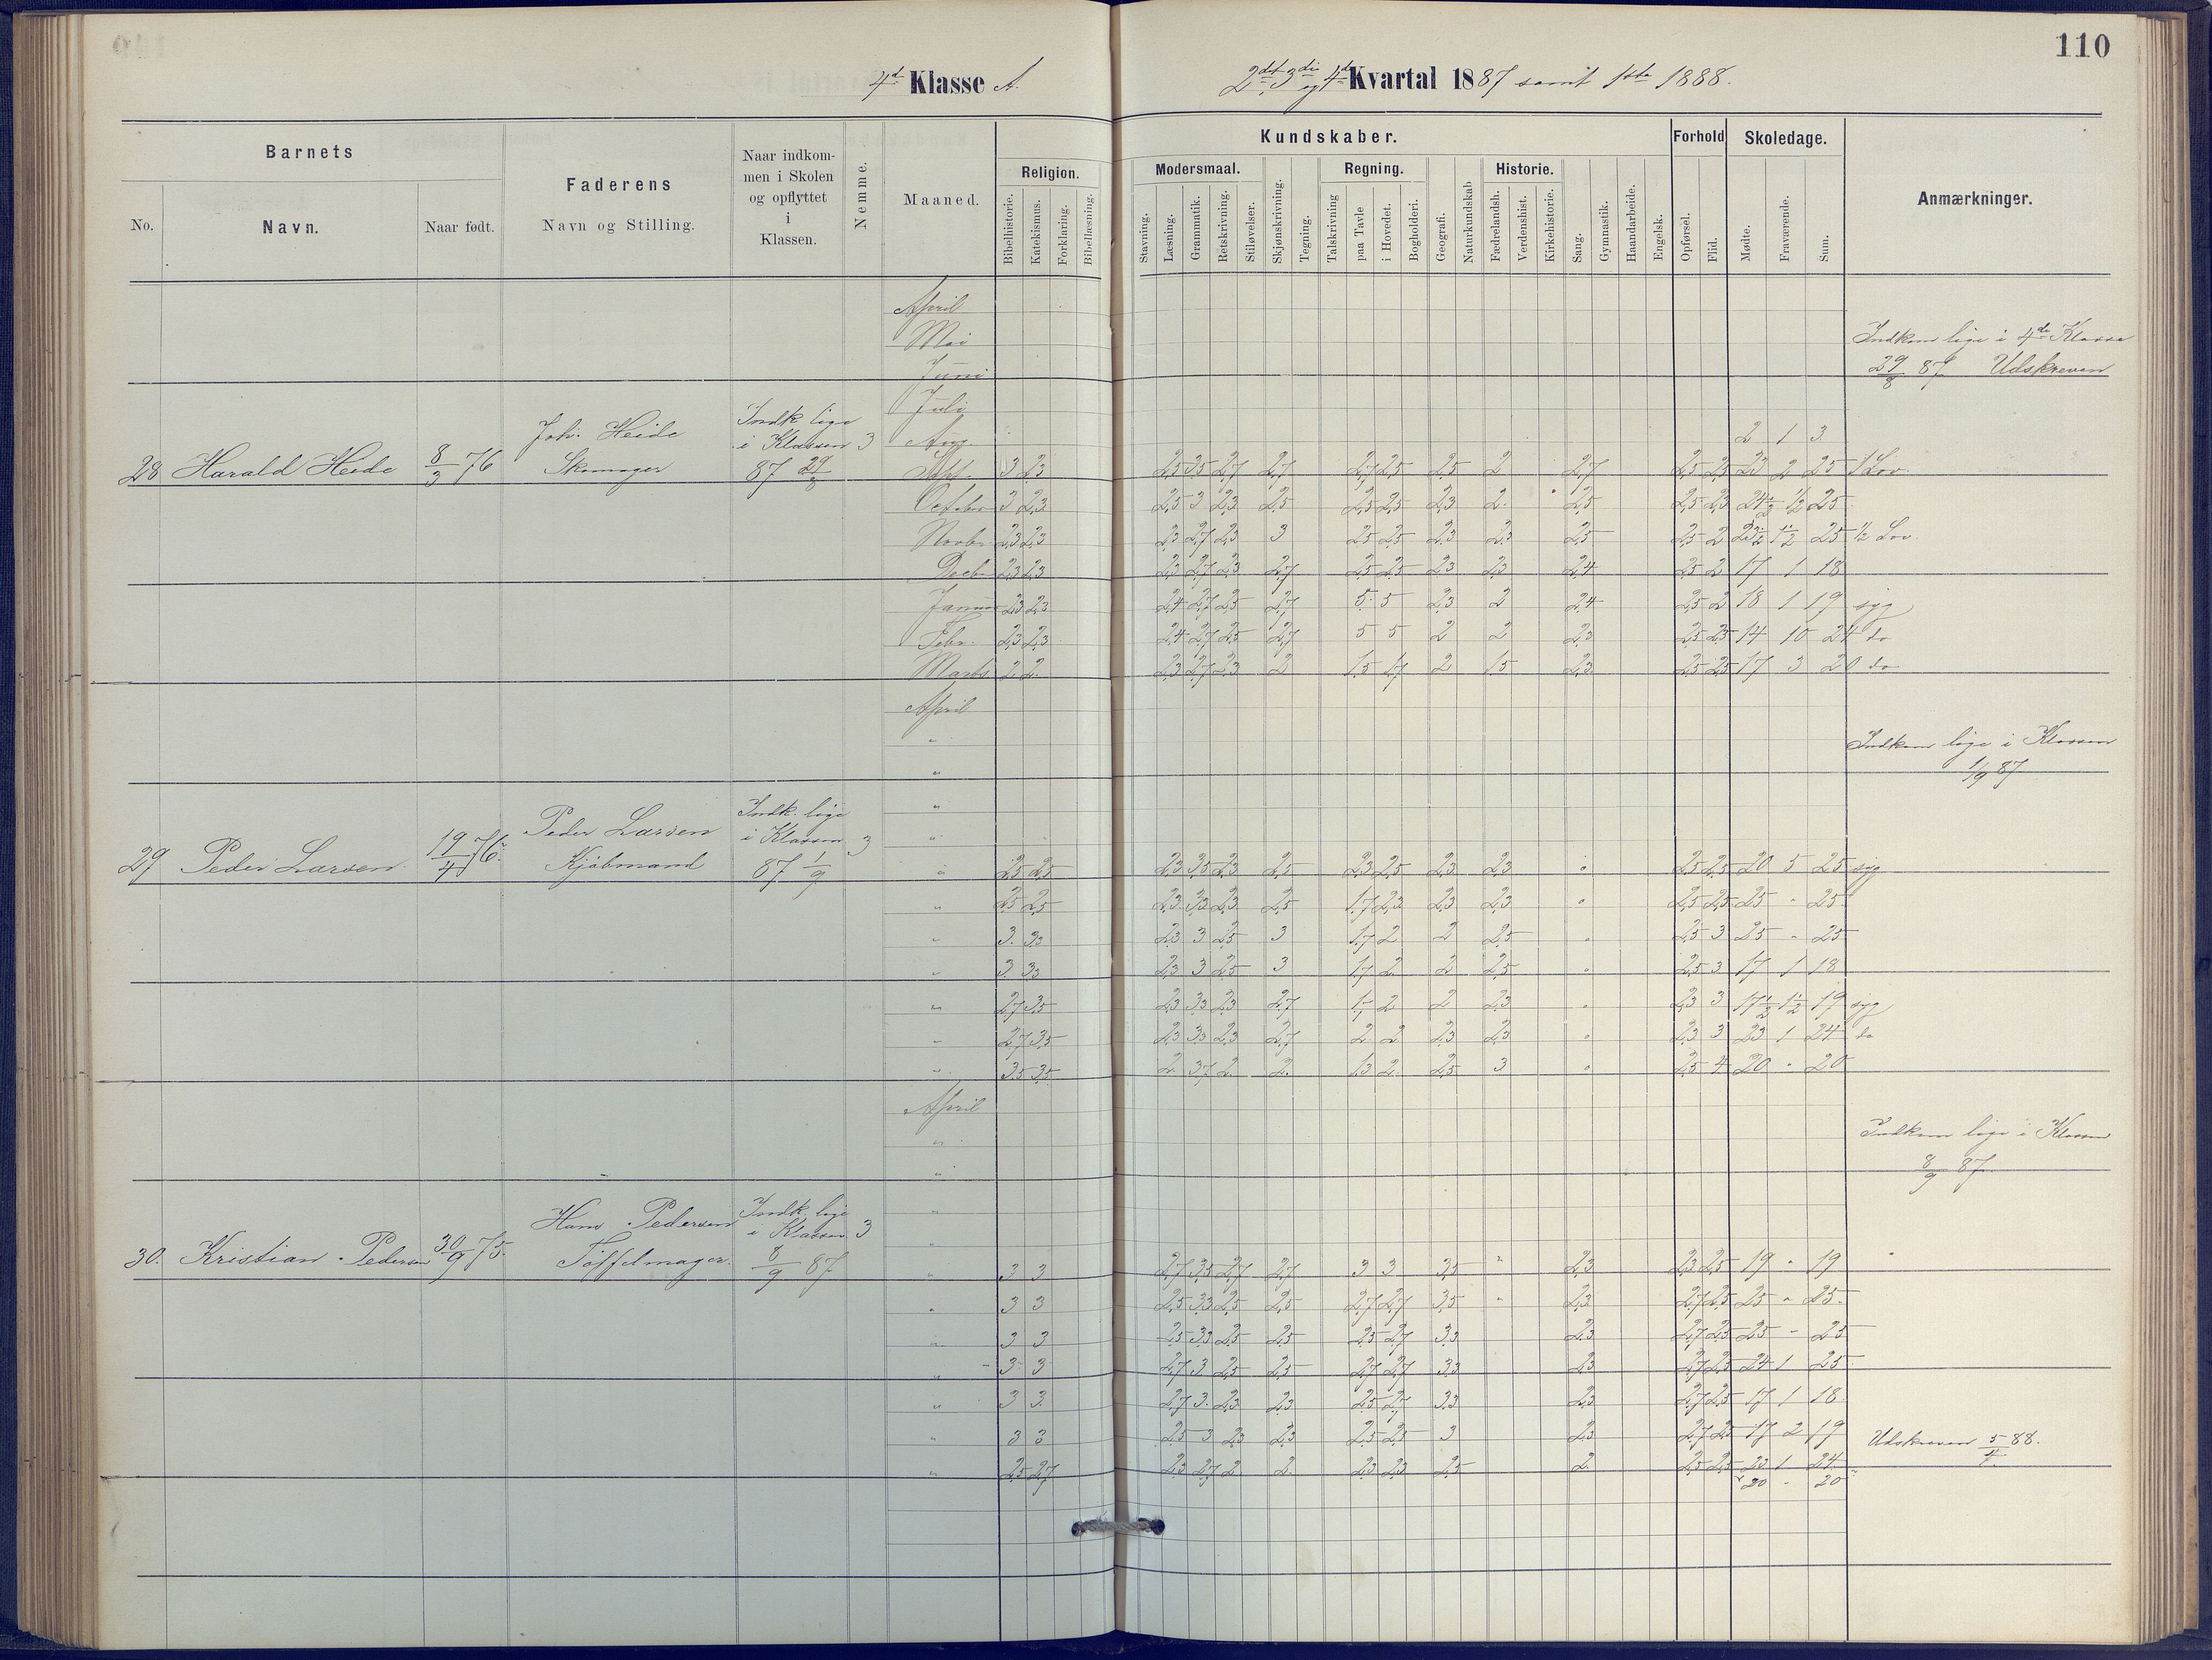 110
4de Klasse A.
2det, 3die og 4de Kvartal 1887 samt 1ste 1888.
Barnets
No.
Navn.
Naar født.
Faderens
Navn og Stilling.
Naar indkom-
men i Skolen
og opflyttet
i
Klassen.
Nemme.
Maaned.
Kundskaber.
Religion.
Bibelhistorie.
Katekismus.
Forklaring.
Bibellæsning.
Modersmaal.
Stavning.
Læsning.
Grammatik.
Retskrivning.
Stiløvelser.
Skjønskrivning.
Tegning.
Regning.
Talskrivning
paa Tavle
i Hovedet.
Bogholderi.
Geografi.
Naturkundskab
Historie.
Fædrelandsh.
Verdenshist.
Kirkehistorie.
Sang.
Gymnastik.
Haandarbeide.
Engelsk.
Forhold
Opførsel.
Flid.
Skoledage.
Mødte.
Fraværende.
Sum.
Anmærkninger.
April
Mai
Juni
Juli
Indkom lige i 4de Klasse
29/8 87 Udskreven
28 Harald Heide 8/3 76
Joh. Heide
Skomager
Indk lige
i Klassen 3
87 29/8
Aug. 2 1 3
Sept. 3 2,3 2,5 3,5 2,7 2,7 2,7 2,5 2,5 2 2,7 2,5 2,5 23 2 25 1 Lov
October 3 2,3 2,5 3 2,3 2,5 2,5 2,5 2,3 2 2,5 2,5 2,3 24½ ½ 25
Novbr 2,3 2,3 2,3 2,7 2,3 3 2,5 2,5 2,3 2,3 2,5 2,5 2 23½ 1½ 25 ½ Lov
Decb. 2,3 2,3 2,3 2,7 2,3 2,7 2,5 2,5 2,3 2,3 2,4 2,5 2 17 1 18
Januar 2,3 2,3 2,4 2,7 2,5 2,7 5 5 2,3 2 2,4 2,5 2 18 1 19 syg
Febr. 2,3 2,3 2,4 2,7 2,5 2,7 5 5 2 2 2,3 2,5 2,5 14 10 24 do
Marts 2 2 2,3 2,7 2,3 2 1,5 1,7 2 1,5 2,3 2,5 2,5 17 3 20 do
April
"
"
"
"
Indkom lige i Klassen
1/9 87
29 Peder Larsen 19/4 76.
Peder Larsen
Kjöbmand
Indk. lige
i Klassen 3
87 1/9
" 2,5 2,5 2,3 3,5 2,3 2,5 2,3 2,5 2,3 2,3 " 2,5 2,5 20 5 25 syg
" 2,5 2,5 2,3 3,3 2,3 2,5 1,7 2,3 2,3 2,3 " 2,5 2,5 25 " 25
" 3 3,3 2,3 3 2,5 3 1,7 2 2 2,5 " 2,5 3 25 " 25
" 3 3,3 2,3 3 2,5 3 1,7 2 2 2,5 " 2,5 3 17 1 18
" 2,7 3,5 2,3 3,3 2,3 2,7 1,7 2 2 2,3 " 2,3 3 17½ 1½ 19 syg
" 2,7 3,5 2,3 3,3 2,3 2,7 2 2 2,3 2,3 " 2,3 3 23 1 24 do
" 3,5 3,5 2 3,7 2 2 1,3 2 2,5 3 " 2,5 4 20 " 20
April
"
"
"
"
Indkom lige i Klassen
8/9 87.
30. Kristian Pedersen 30/9 75.
Hans Pedersen
Töffelmager.
Indk. lige
i Klassen 3
8/9 87
" 3 3 2,7 3,5 2,7 2,7 3 3 3,5 " 2,3 2,3 2,5 19 " 19
" 3 3 2,5 3,3 2,5 2,5 2,7 2,7 3,5 " 2,3 2,7 2,5 25 " 25
" 3 3 2,5 3,3 2,5 2,5 2,5 2,7 3,3 2,3 2,7 2,5 25 " 25
" 3 3 2,7 3 2,5 2,5 2,7 2,7 3,3 2,3 2,7 2,5 24 1 25
" 3 3 2,7 3 2,3 2,3 2,5 2,7 3,3 2,3 2,7 2,5 17 1 18
" 3 3 2,5 3 2,3 2,3 2,5 2,5 3 2,3 2,7 2,5 17 2 19
" 2,5 2,7 2,3 2,7 2 2 2,3 2,3 2,5 2 2,5 2,5 23 1 24
20 - 20
Udskreven 5/4 88.